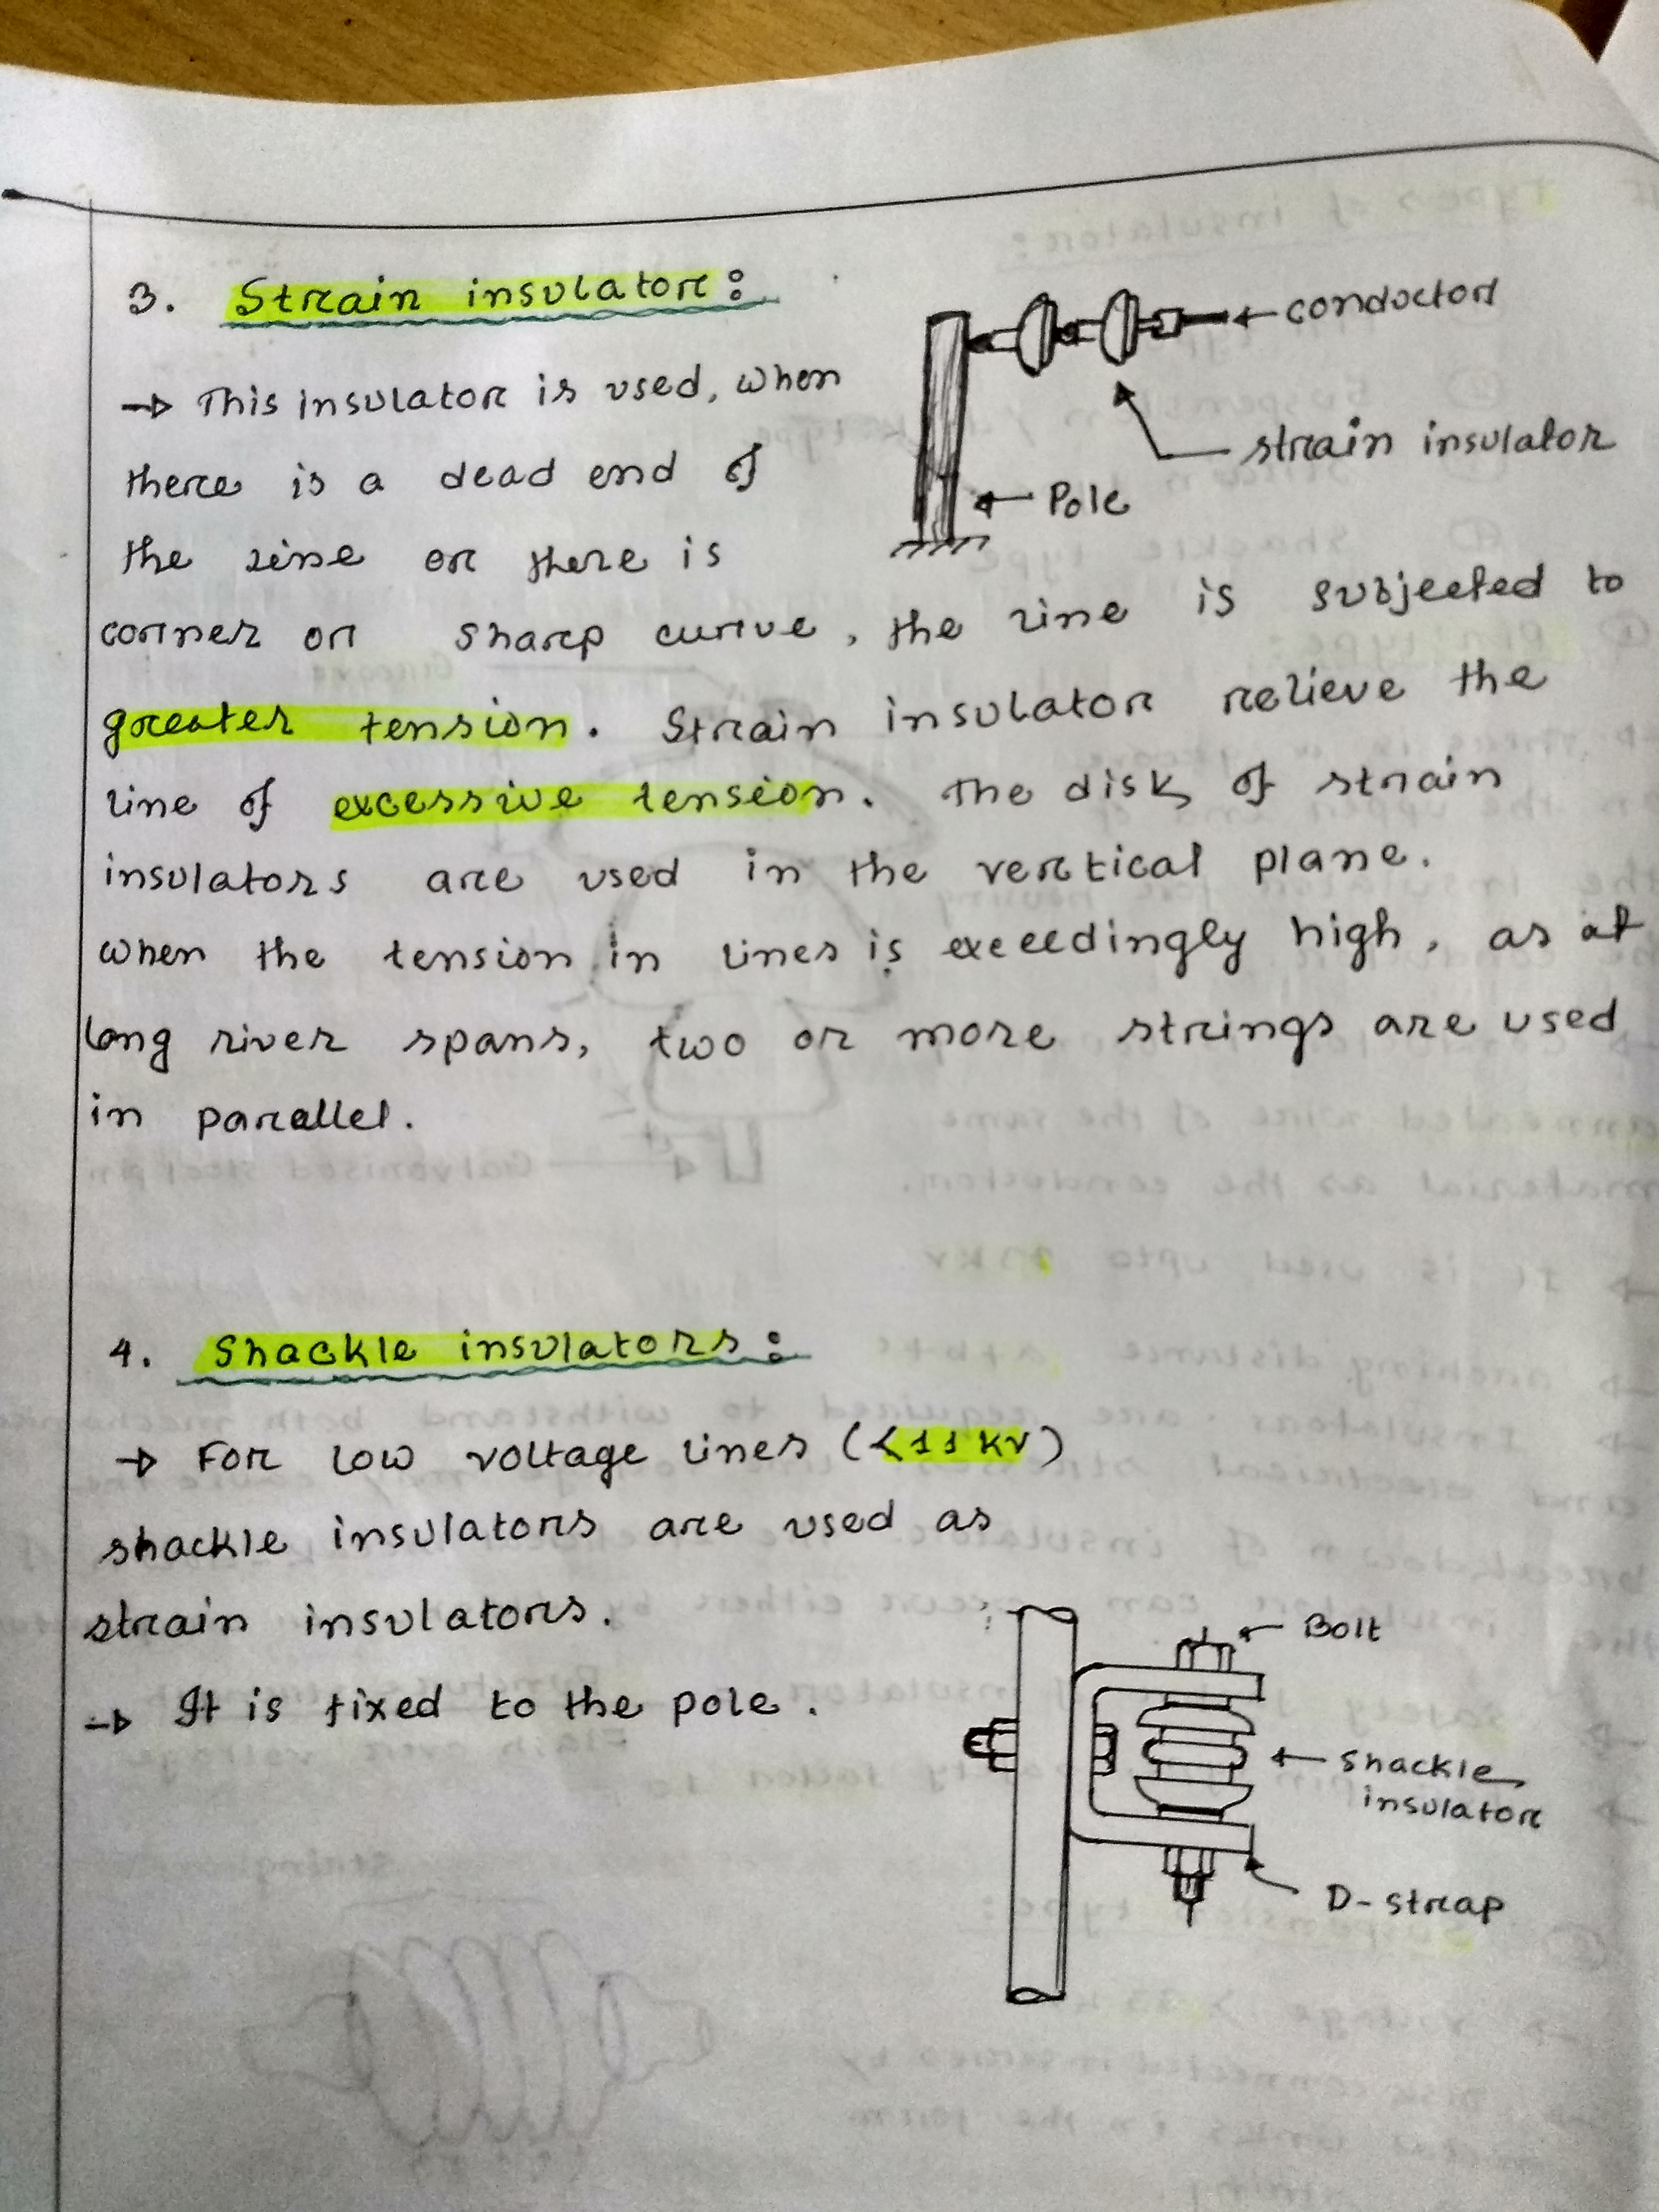 3. Strain insulator:
conductor
→ This insulator is used, when
strain insulator
there is a dead end of
Pole
the line or there is
corner or sharp curve, the line is subjected to
greater tension. Strain insulator relieve the
line of excessive tension. The disk of strain
insulators are used in the vertical plane.
when the tension in lines is exceedingly high, as at
long river spans, two or more strings are used
in parallel.
4. Shackle insulators:
→ For low voltage lines (<11 kv)
shackle insulators are used as
strain insulators.
Bolt
→ It is fixed to the pole.
shackle
insulator
D-strap